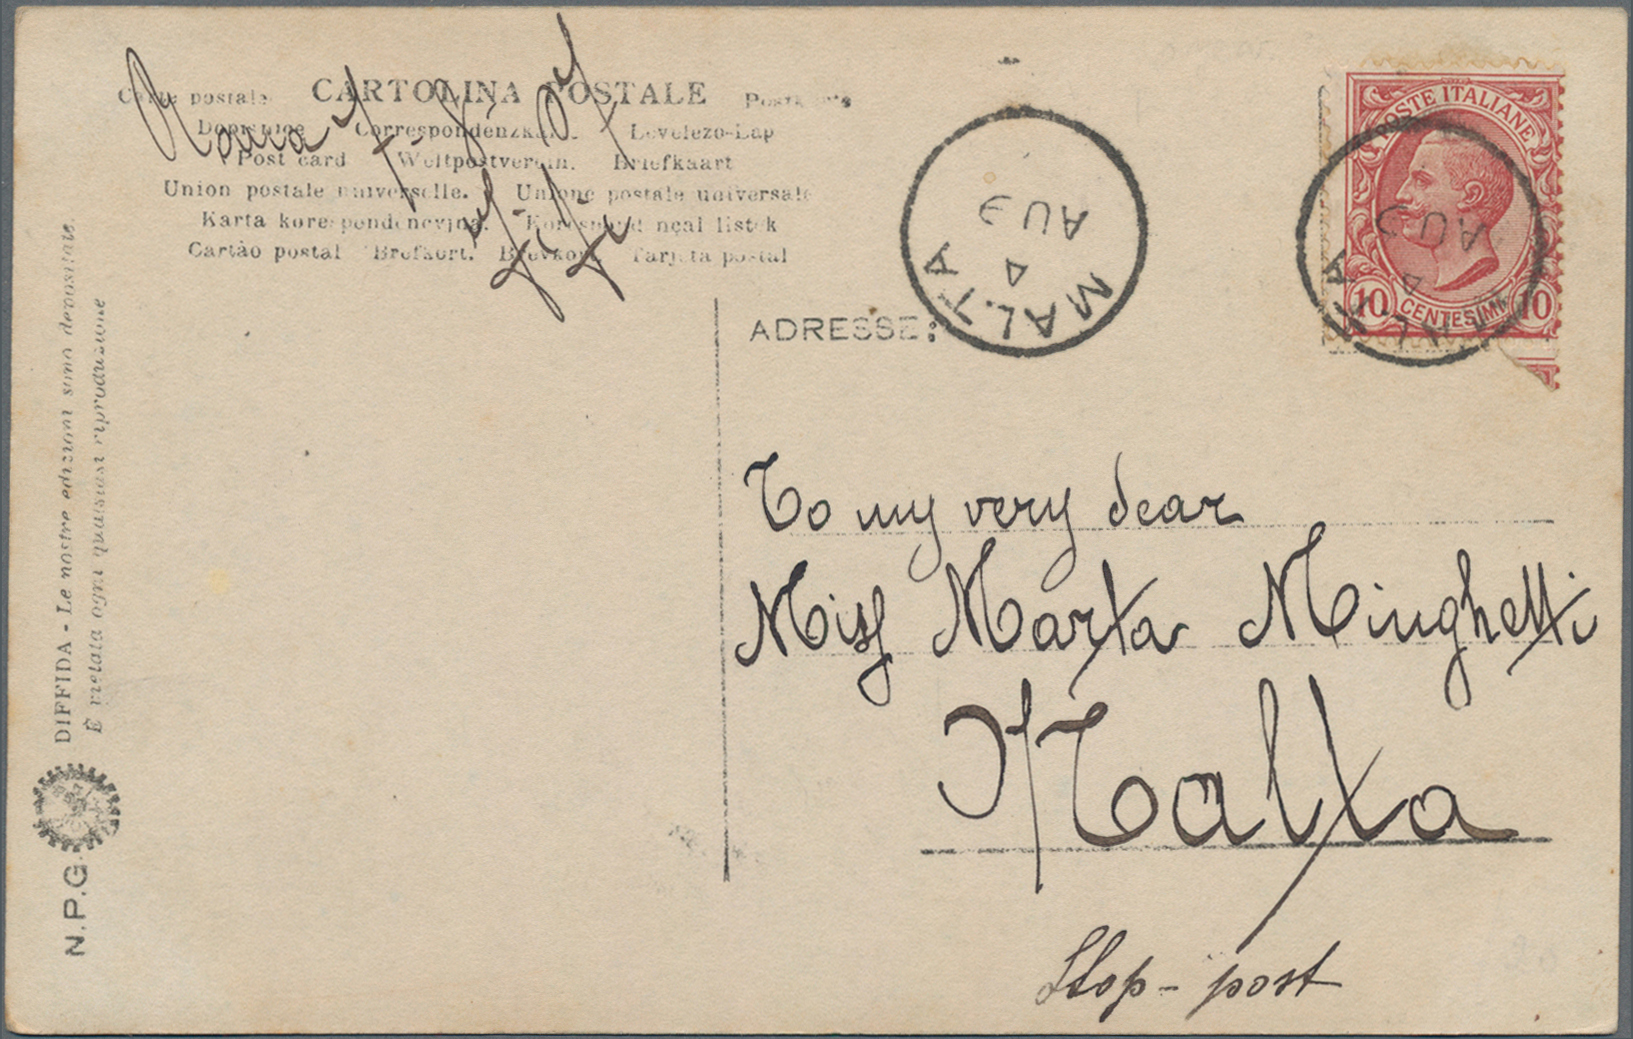 CARTOLINA POSTALE
Carte postale
Correspondenzkarte Levelezo-Lap
Post card Weltpostverein. Briefkaart
Union postale universelle. Unione postale universale
Karta korespondencyjna.
Cartào postal Brefkort. Brevkort. Tarjeta postal
Roma
DIFFIDA - Le nostre edizioni sono depositate.
È vietata ogni qualsiasi riproduzione
N.P.G.
ADRESSE:
MALTA
4
AU 9
POSTE ITALIANE
10 CENTESIMI 10
MALTA
4
AU 9
To my very dear
Miss Marta Minghetti
Malta
Stop - post